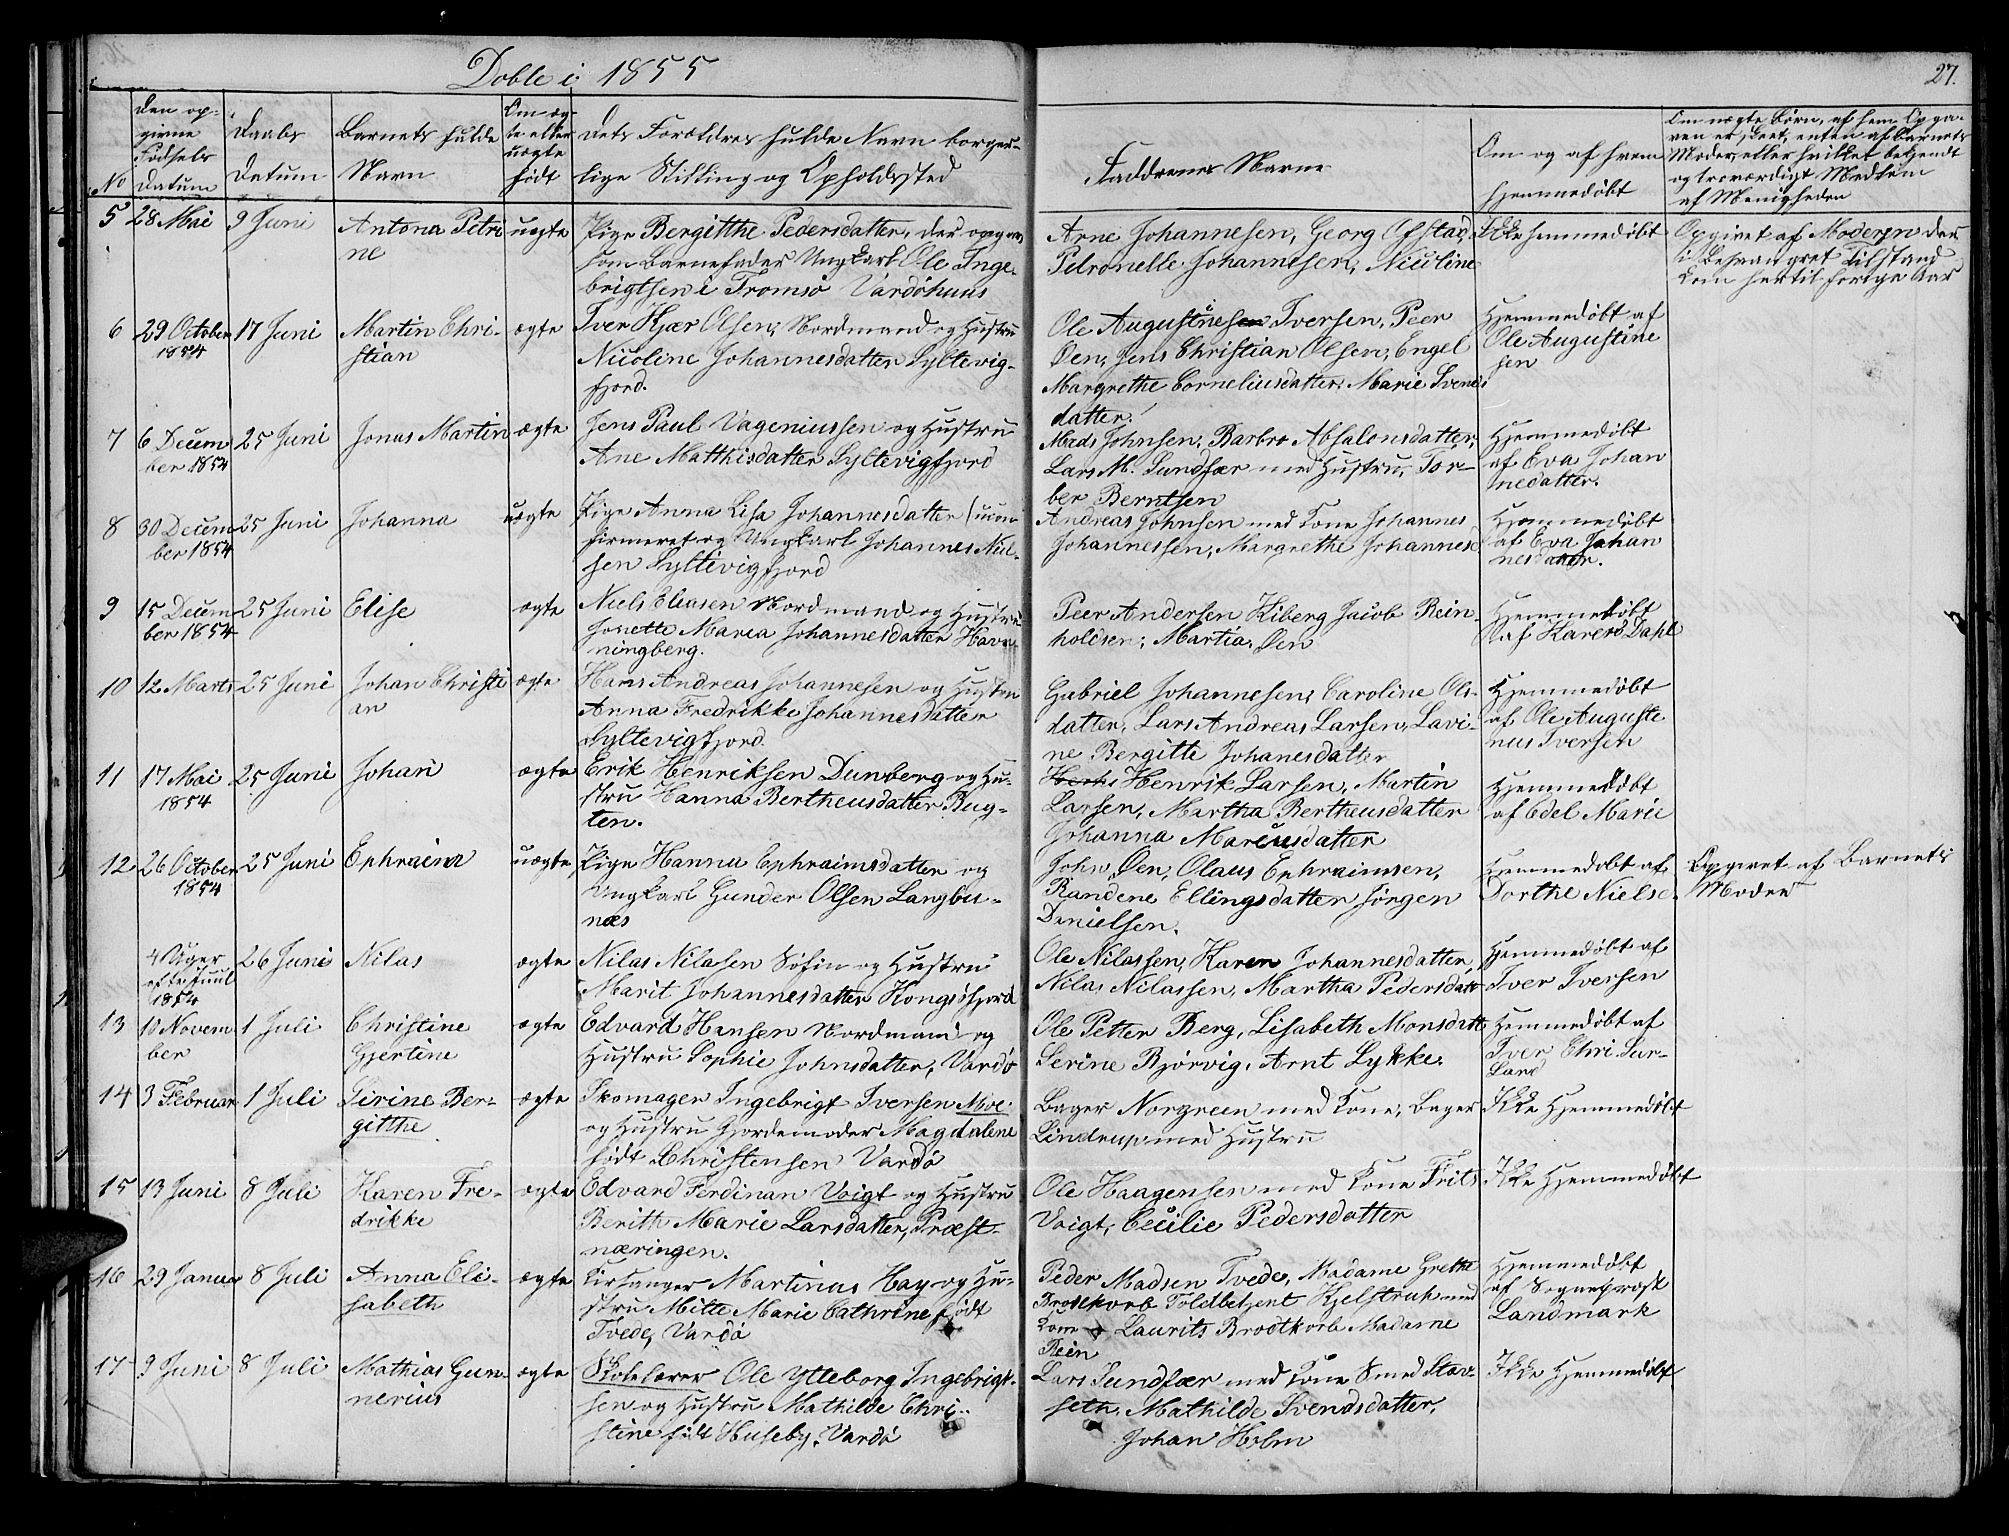 Døbte i 1855
27.
No
Den op-
givne
Fødsels
Datum
Daabs
Datum
Barnets fulde
Navn
Om æg-
te eller
uægte
født
Dets Forældres fulde Navn borger-
lige Stilling og Opholdssted
Faddrenes Navne
Om og af hvem
hjemmedøbt
Om uægte Børn, af hvem Opga-
ven er skeet, enten af Barnets
Moder, eller hvilket bekjendt
og troværdigt Medlem
af Menigheden
5 28 Mai 9 Juni Antona Petri uægte Pige Bergitthe Pedersdatter, der opgav
ne som Barnefader Ungkarl Ole Inge-
brigtsen i Tromsø Vardøhuus
Arne Johannesen, Georg Ofstad, Ikke hjemmedøbt
Petronelle Johannesen, Nicoline
Opgivet af Moderen der
i besvangret Tilstand
kom hertil forrige Aar
6 29 October 17 Juni Martin Chri- ægte Iver Kjær Olsen, Nordmand og Hustru
1854 stian Nicoline Johannesdatter Syltevig-
fjord.
Ole Augustinesen Iversen, Peer
Øen, Jens Christian Olsen, Engel
Margrethe Corneliusdatter, Marie Svens
datter.
Hjemmedøbt af
Ole Augustine
sen
7 6 Decem 25 Juni Jonas Martin ægte Jens Paul Vageniussen og Hustru
ber 1854 Ane Matthisdatter Syltevigfjord
Mads Johnsen, Barbro Absalonsdatter,
Lars M. Sundfær med Hustru, Tor-
ber Berntsen
Hjemmedøbt
af Eva Johan
nedatter.
8 30 Decem 25 Juni Johanna uægte Pige Anna Lisa Johannesdatter /ucon
ber 1854 firmeret og Ungkarl Johannes Niel-
sen Syltevigfjord
Andreas Johnsen med Kone Johannes
Johannessen, Margrethe Johannesd
Hjemmedøbt
af Eva Johan
nesdatter.
9 15 Decem 25 Juni Elise ægte Niels Eliasen Nordmand og Hustru
ber 1854 Jonette Marea Johannesdatter Havn
ningberg.
Peer Andersen Kiberg Jacob Rein-
holdsen, Martia Øen
Hjemmedøbt
af Karen Dahl
10 12 Marts 25 Juni Johan Christi ægte Hans Andreas Johannesen og Hustru
an Anna Fredrikke Johannesdatter
Syltevigfjord.
Gabriel Johannesen, Caroline Ols-
datter, Lars Andreas Larsen, Lavi-
ne Bergitte Johanesdatter
Hjemmedøbt
af Ole Auguste
nus Iversen
11 17 Mai 25 Juni Johan ægte Erik Henriksen Dunberg og Hu-
1854 stru Hanna Bertheusdatter Bug-
ten.
Henrik Larsen, Martin
Larsen, Martha Bertheusdatter
Johanna Marcusdatter
Hjemmedøbt
af Edel Marie
12 26 October 25 Juni Ephraim uægte Pige Hanna Ephraimsdatter og
1854 Ungkarl Gunder Olsen Langbu-
næs
John Øen, Olaus Ephraimsen,
Randene Ellingsdatter Jørgen
Danielsen.
Hjemmedøbt af
Dorthe Nielsd.
Opgivet af Barnets
Moder
4 Uger 26 Juni Nilas ægte Nilas Nilasen Søfin og Hustru
efter Juul Marit Johannesdatter Kongsøfjord
1854
Ole Nilassen, Karen Johannesdatter,
Nilas Nilassen, Martha Pedersdatt
Hjemmedøbt af
Iver Iversen
13 10 Novem 1 Juli Christine ægte Edvard Hansen Nordmand og
ber Gjertine Hustru Sophie Johnsdatter, Vardø
Ole Petter Berg, Lisabeth Monsdatt
Serine Bjørvig, Arnt Lykke.
Hjemmedøbt af
Iver Chri. Sur-
land
14 3 Februar 1 Juli Sirine Ber- ægte Skomager Ingebrigt Iversen Moe
gitthe og Hustru Gjordemoder Magdalene
født Christensen Vardø
Bager Norgreen med Kone, Bager
Lindrup med Hustru
Ikke Hjemmedøbt
15 13 Juni 8 Juli Karen Fre- ægte Edvard Ferdinan Voigt og Hustru
drikke Berith Marie Larsdatter, Præst-
næringen.
Ole Haagensen med Kone Frits
Voigt, Cecilie Pedersdatter
Ikke Hjemmedøbt
16 29 Januar 8 Juli Anna Eli- ægte Kirsanger Martinus Hay og Hu-
sabeth stru Mitte Marie Cathrine født
Tvede, Vardø
Peder Madsen Tvede, Madame Grethe
Brodtkorb Toldbetjent Kjelstrub med
Kone Laurits Brodtkorb Madame
Rein
Hjemmedøbt
af Sogneprest
Landmark
17 9 Juni 8 Juli Mathias Gun- ægte Skolelærer Ole Ytteborg Ingebrigt-
nerius sen og Hustru Mathilde Chri-
stine født Huseby, Vardø
Lars Sundfær med Kone Smed Stav-
seth, Mathilde Svendsdatter,
Johan Holm
Ikke Hjemmedøbt